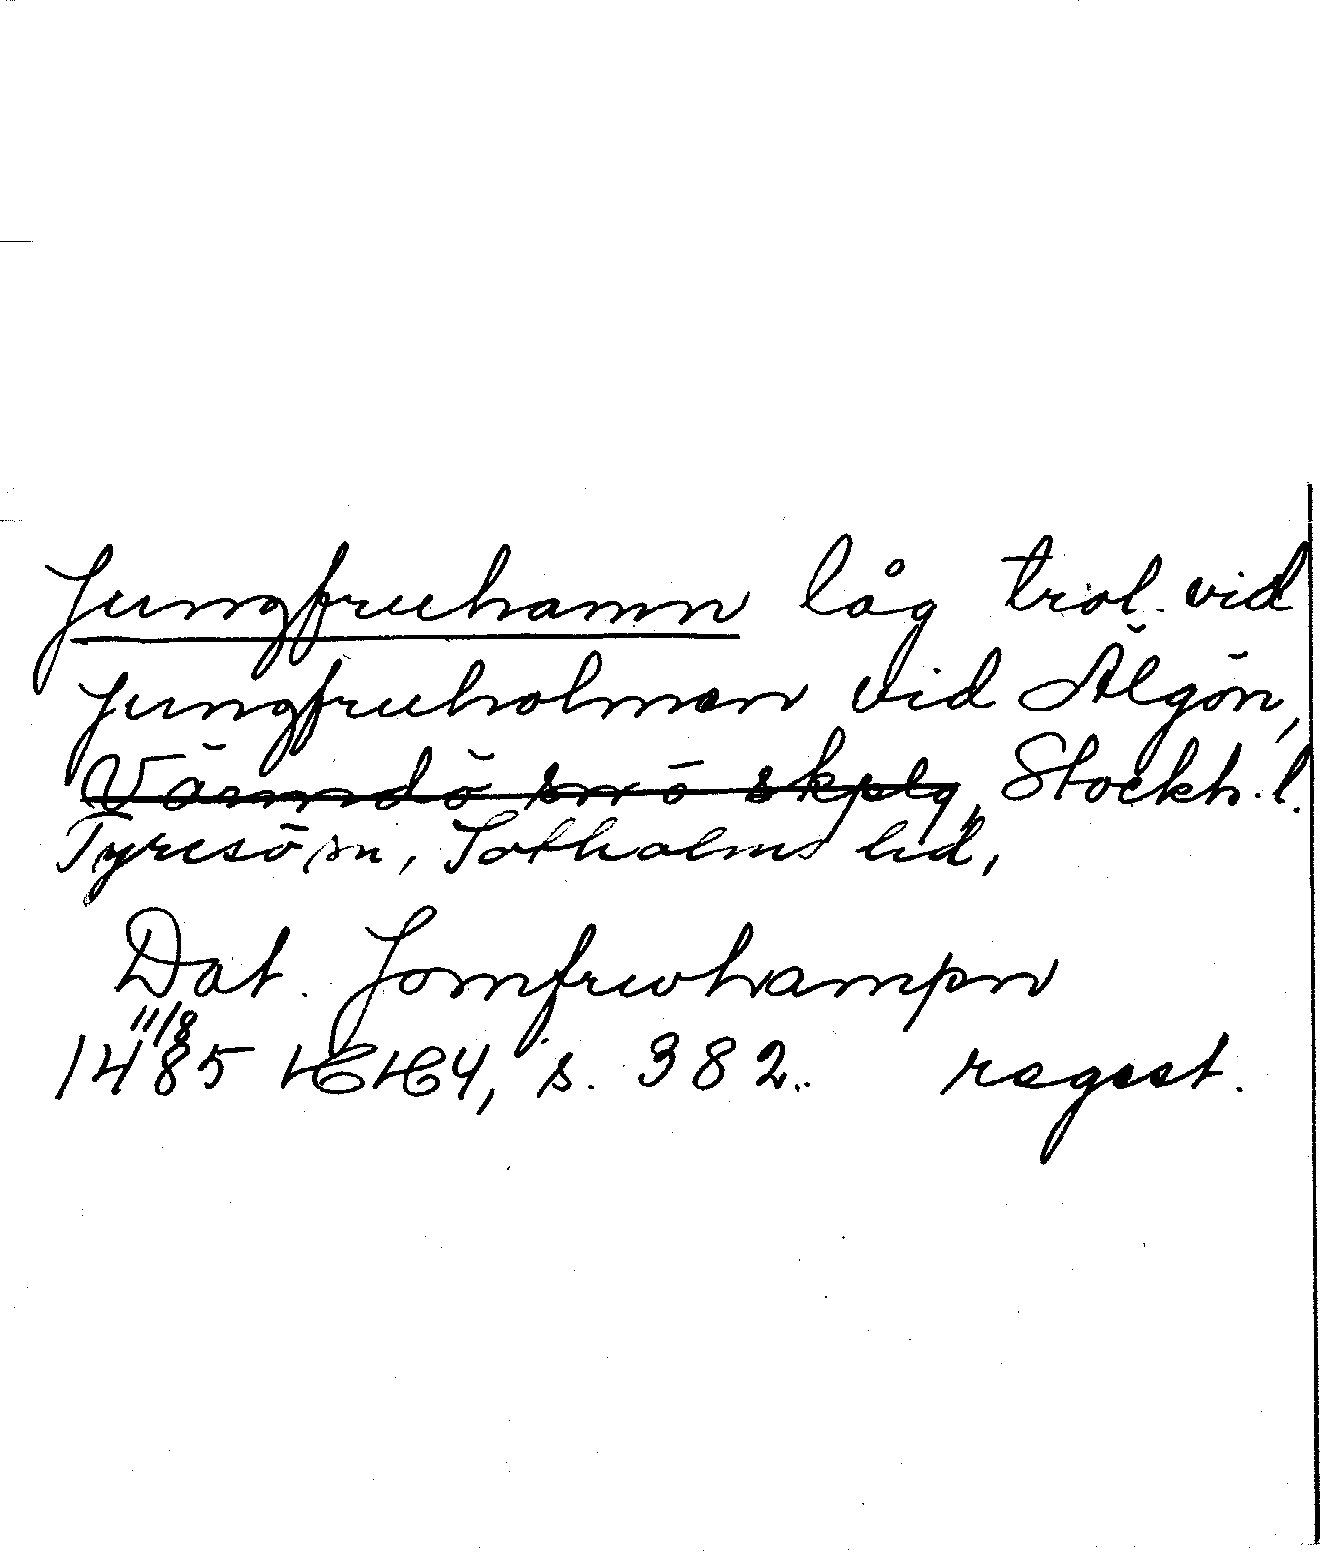 Jungfruhamn låg trol. vid
Jungfruholmen vid Älgön,
Värmdö sn ö skplg, Stockh. l.
Tyresö sn, Sotholms hd,
Dat. Jomfrwhampn
11/8
1485 HCH4, s. 382. regest.